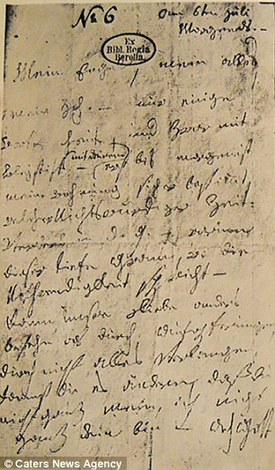 No 6
am 6ten Juli
Morgends. –
Ex
Bibl. Regia
Berolin.
Mein Engel, mein alles
mein Ich – nur einige
Worte heute, und zwar mit
Bleystift (mit deinem) erst
bis morgen ist
meine Wohnung sicher bestimmt,
welcher Nichtswürdige Zeit-
Verderb in d. g. – warum
dieser tiefe Gram, wo die
Nothwendigkeit spricht –
Kann unsre Liebe anders
bestehn als durch Aufopferungen,
durch nicht alles verlangen,
kannst du es ändern, daß du
nicht ganz mein, ich nicht
ganz dein bin – Ach Gott
© Caters News Agency